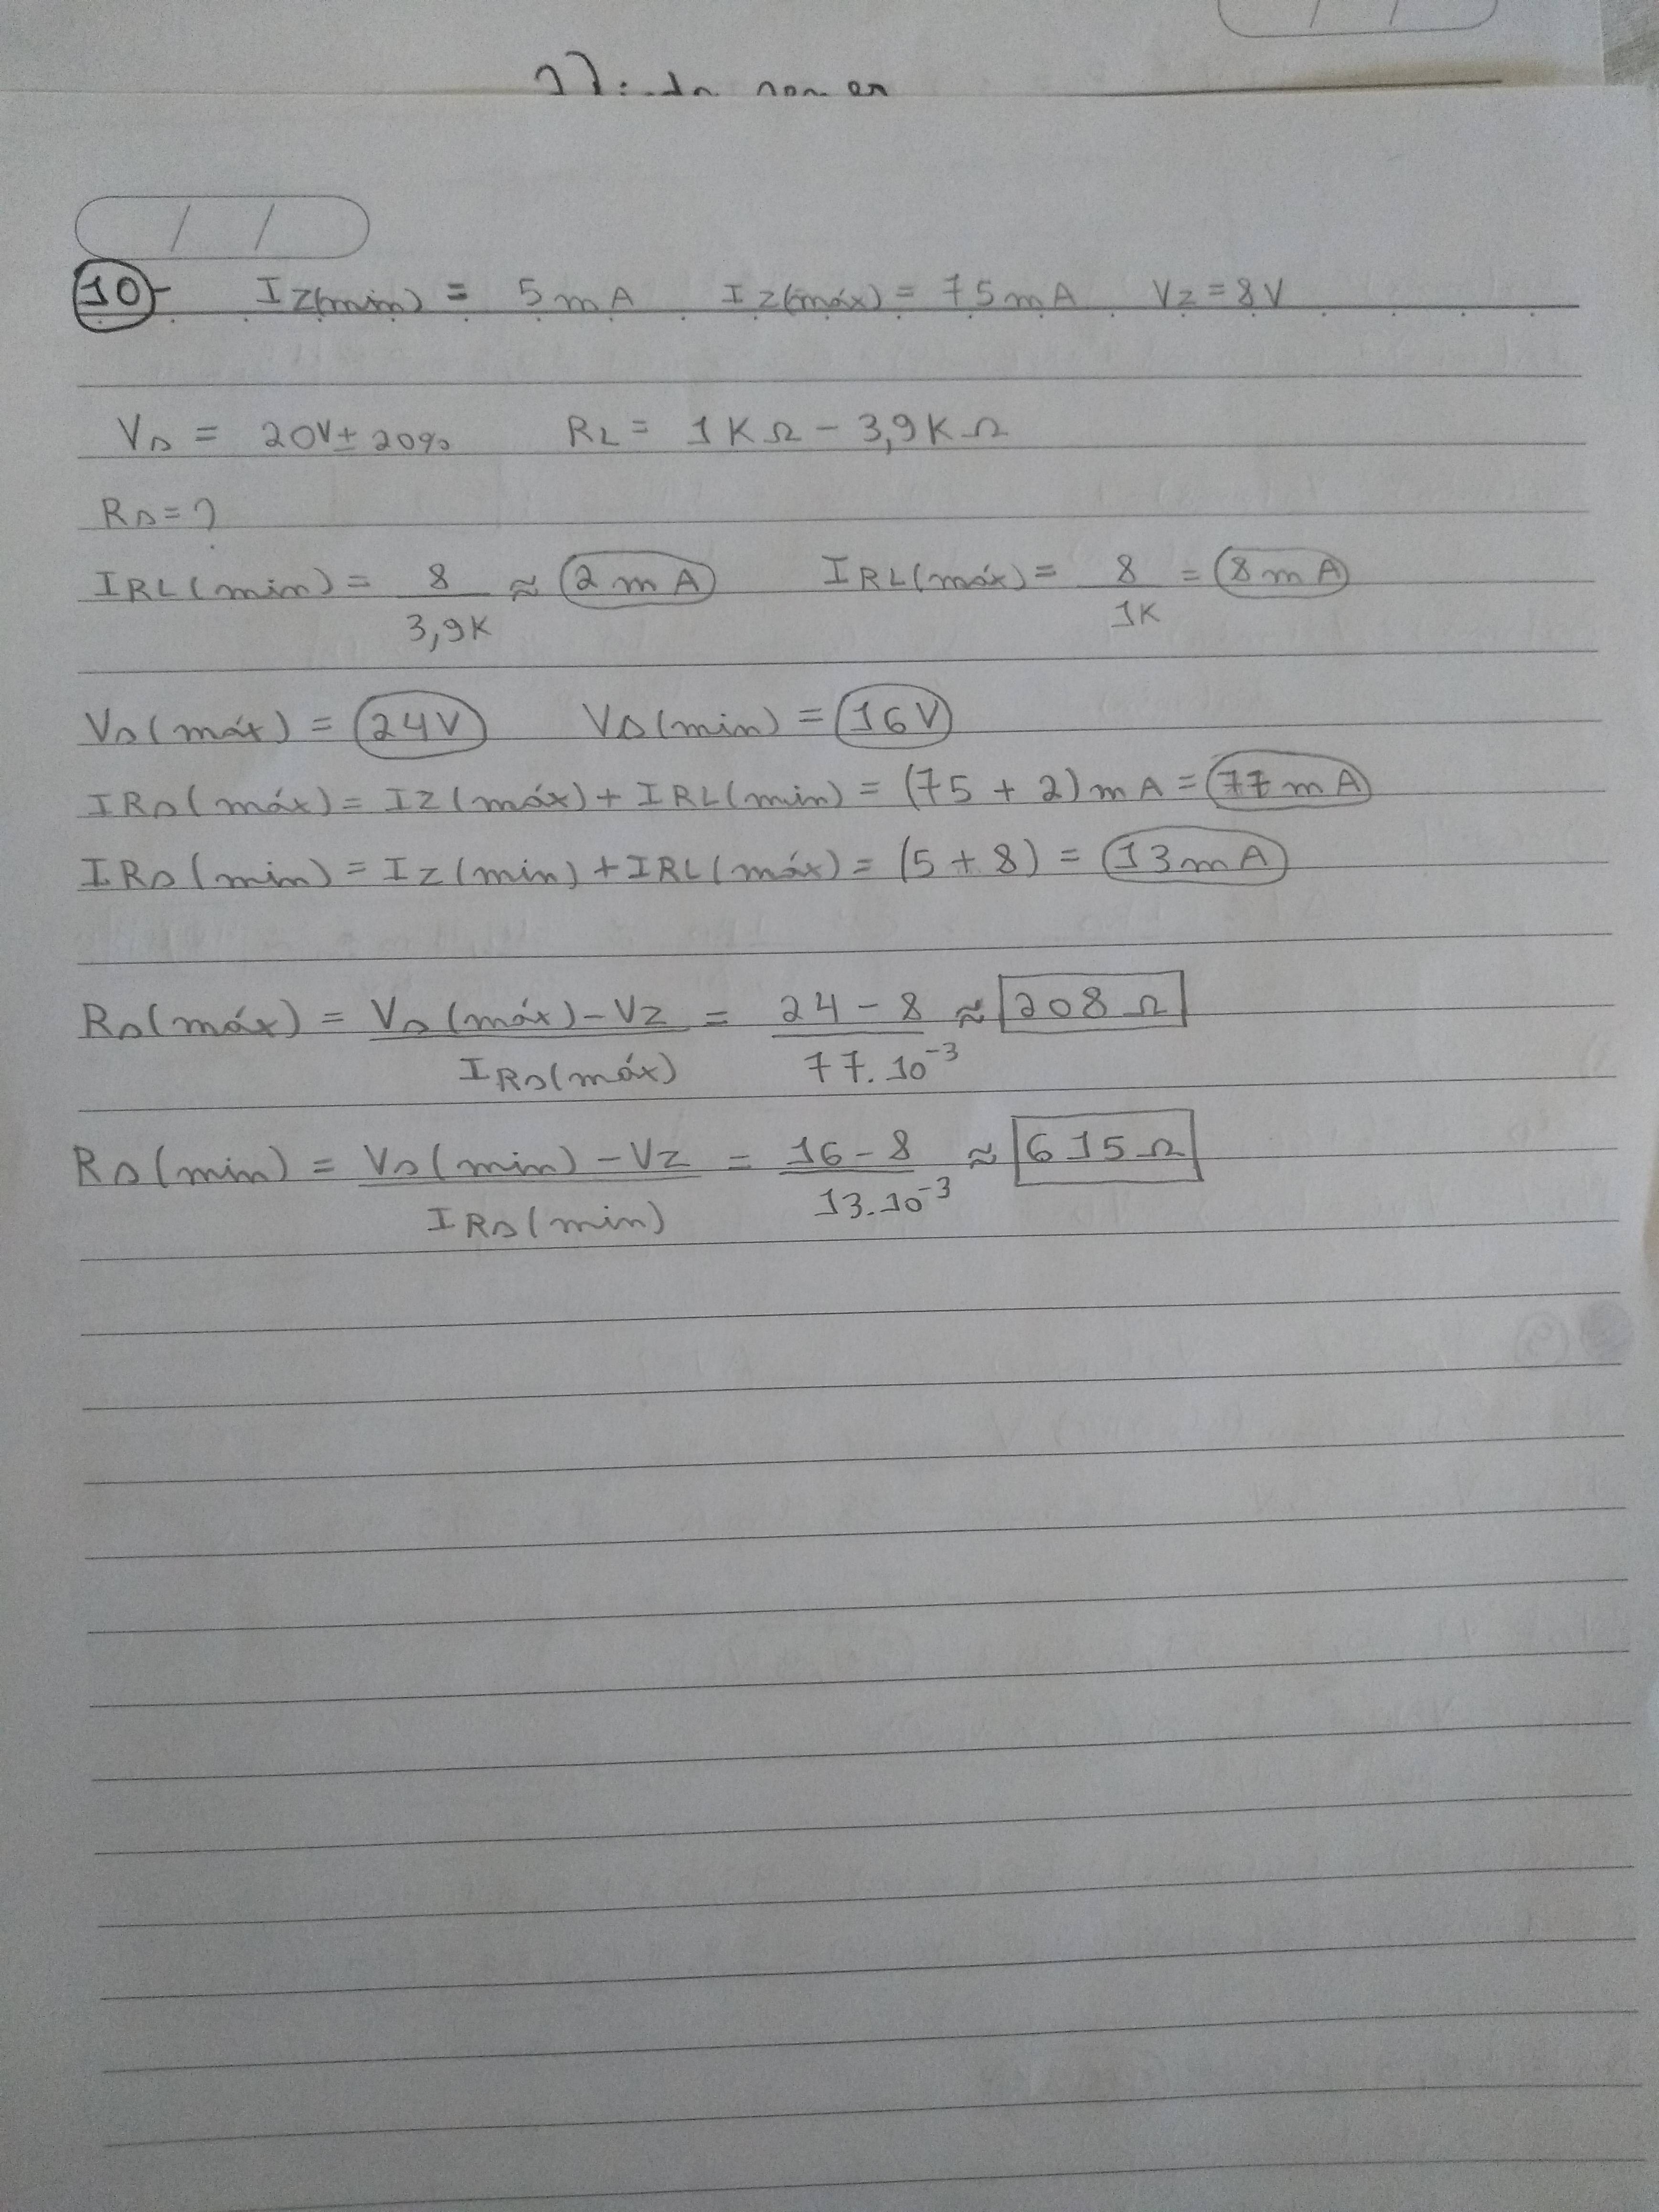 / /
/ /
10- Iz(min) = 5mA Iz(máx) = 75mA Vz = 8V
Vs = 20V ± 20% RL = 1KΩ - 3,9KΩ
Rs = ?
IRL(min) = 8 / 3,9K ≈ 2mA IRL(máx) = 8 / 1K = 8mA
Vs(máx) = 24V Vs(min) = 16V
IRs(máx) = Iz(máx) + IRL(min) = (75 + 2)mA = 77mA
IRs(min) = Iz(min) + IRL(máx) = (5 + 8) = 13mA
Rs(máx) = Vs(máx) - Vz / IRs(máx) = 24 - 8 / 77.10⁻³ ≈ 208Ω
Rs(min) = Vs(min) - Vz / IRs(min) = 16 - 8 / 13.10⁻³ ≈ 615Ω